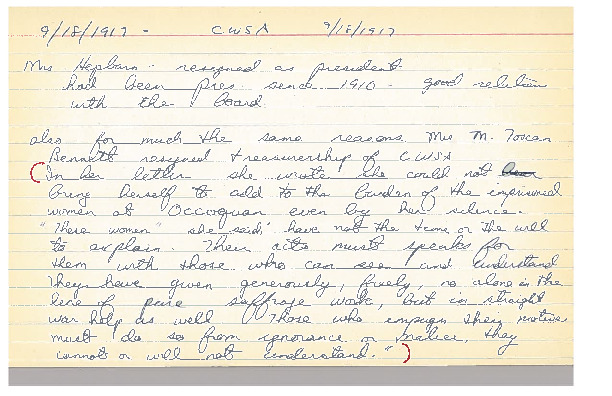 9/18/1917 - CWSA 9/18/1917
Mrs Hepburn - resigned as president.
had been pres. since 1910 - good relations
with the board
also for much the same reasons Mrs M. Toscan
Bennett resigned treasurership of CWSA
(In her letter she wrote she could not
bring herself to add to the burden of the imprisoned
women at Occoquan even by her silence.
"These women" she said, "have not the time or the will
to explain. Their acts must speaks for
them with those who can see and understand
They have given generously, freely, no alone in the
line of pure suffrage work, but in straight
war help as well. Those who impugn their motives
must do so from ignorance or malice, they
cannot or will not understand.")